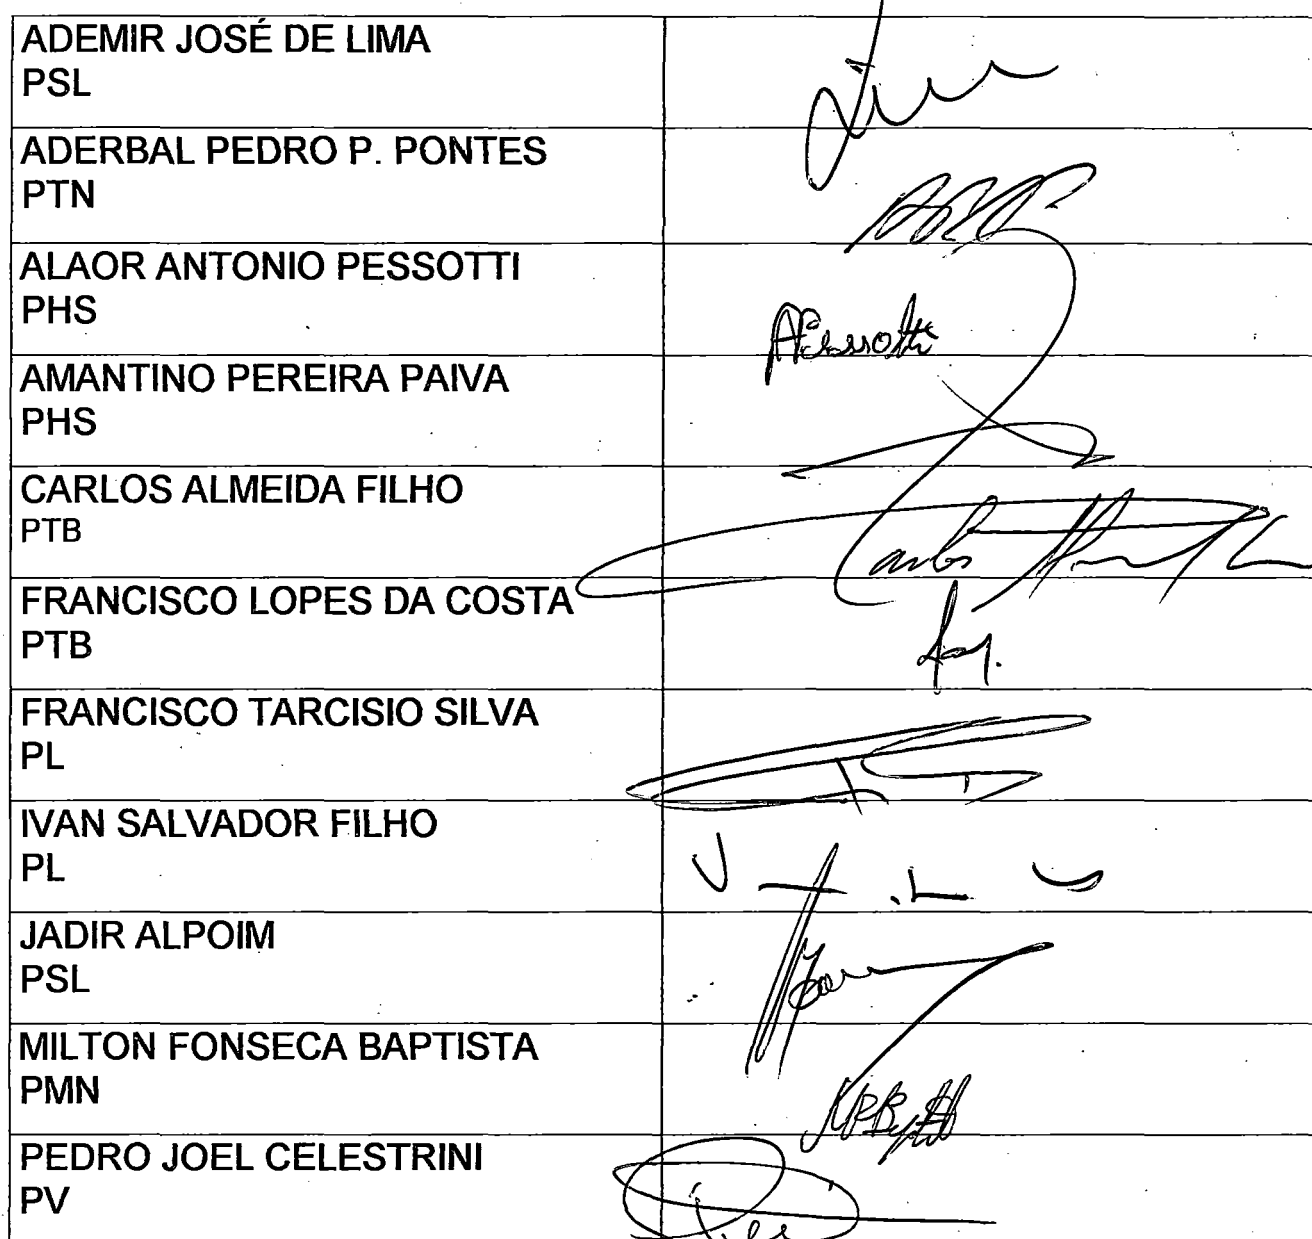 ADEMIR JOSÉ DE LIMA
PSL
ADERBAL PEDRO P. PONTES
PTN
ALAOR ANTONIO PESSOTTI
PHS
APessotti
AMANTINO PEREIRA PAIVA
PHS
CARLOS ALMEIDA FILHO
PTB
Carlos
FRANCISCO LOPES DA COSTA
PTB
FRANCISCO TARCISIO SILVA
PL
IVAN SALVADOR FILHO
PL
JADIR ALPOIM
PSL
MILTON FONSECA BAPTISTA
PMN
PEDRO JOEL CELESTRINI
PV